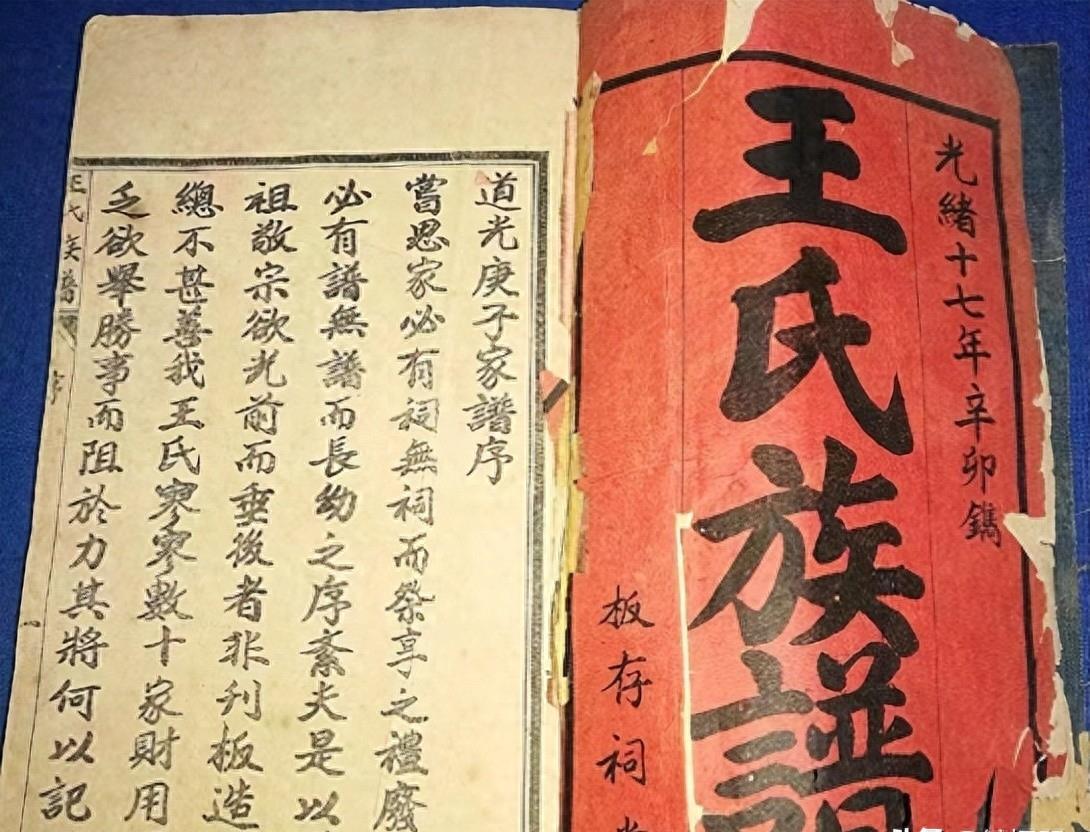 光緒十七年辛卯鐫
王氏族譜
板存祠
道光庚子家譜序
嘗思家必有祠無祠而祭享之禮廢
必有譜無譜而長幼之序紊夫是以
祖敬宗欲光前而垂後者非刋板造
總不甚善我王氏寥寥數十家財用
乏欲舉勝事而阻於力其將何以記
王氏族譜